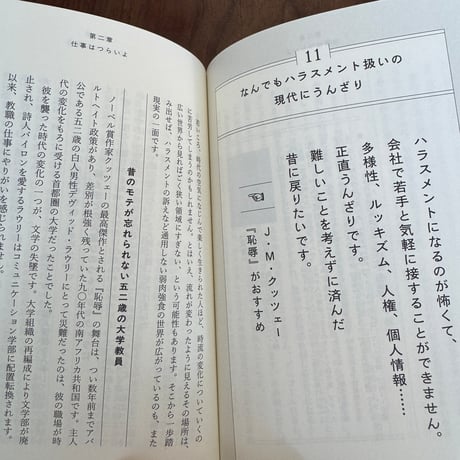 11
なんでもハラスメント扱いの
現代にうんざり
ハラスメントになるのが怖くて、
会社で若手と気軽に接することができません。
多様性、ルッキズム、人権、個人情報……
正直うんざりです。
難しいことを考えずに済んだ
昔に戻りたいです。
J・M・クッツェー
『恥辱』がおすすめ
第二章
仕事はつらいよ
若いころ、時代の空気になじんで楽しく生きられた人ほど、時流の変化についていくの
に苦労してしまうのかもしれません。とはいえ、流れが変わったように見えるその場所は、
広い世界から見ればごく狭い領域にすぎない、という可能性もあります。そこから一歩踏
み出せば、ハラスメントの訴えなど通用しない弱肉強食の世界が広がっているのも、また
現実の一面です。
昔のモテが忘れられない五二歳の大学教員
ノーベル賞作家クッツェーの最高傑作とされる『恥辱』の舞台は、つい数年前までアパ
ルトヘイト政策があり、差別が根強く残っていた九〇年代の南アフリカ共和国です。主人
公である五二歳の白人男性デヴィッド・ラウリーにとって災難だったのは、彼の職場が時
代の変化をもろに受ける首都圏の大学だったことでした。
彼を襲った時代の変化の一つが、文学の失墜です。大学組織の再編成により文学部が廃
止され、詩人バイロンを愛するラウリーはコミュニケーション学部に配置転換されます。
以来、教職の仕事にやりがいを感じられません。